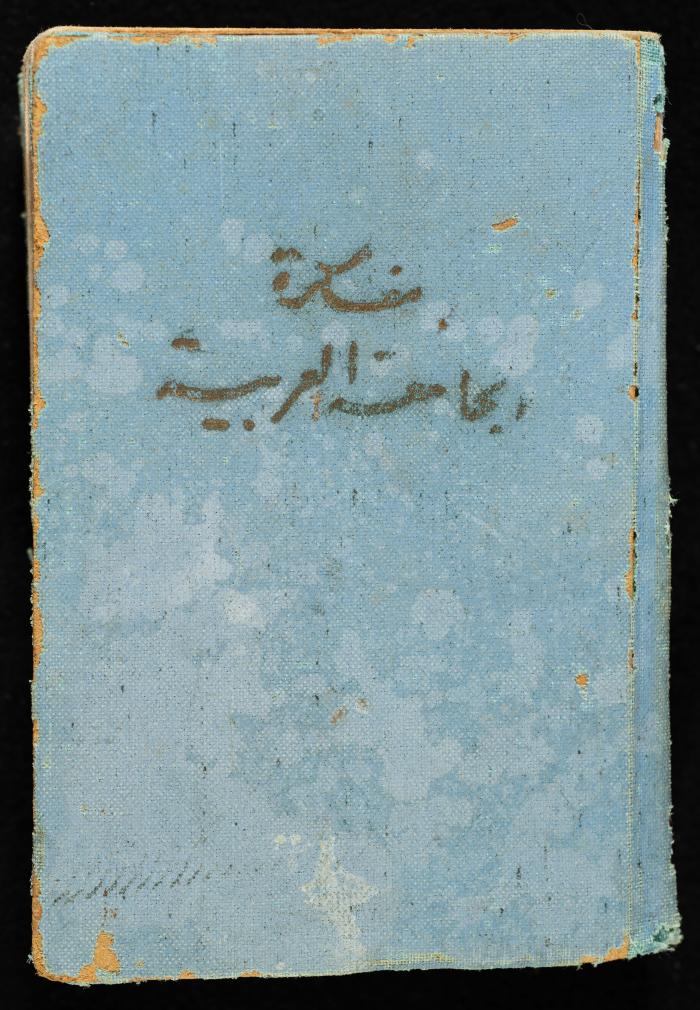 مفكرة
الجامعة العربية